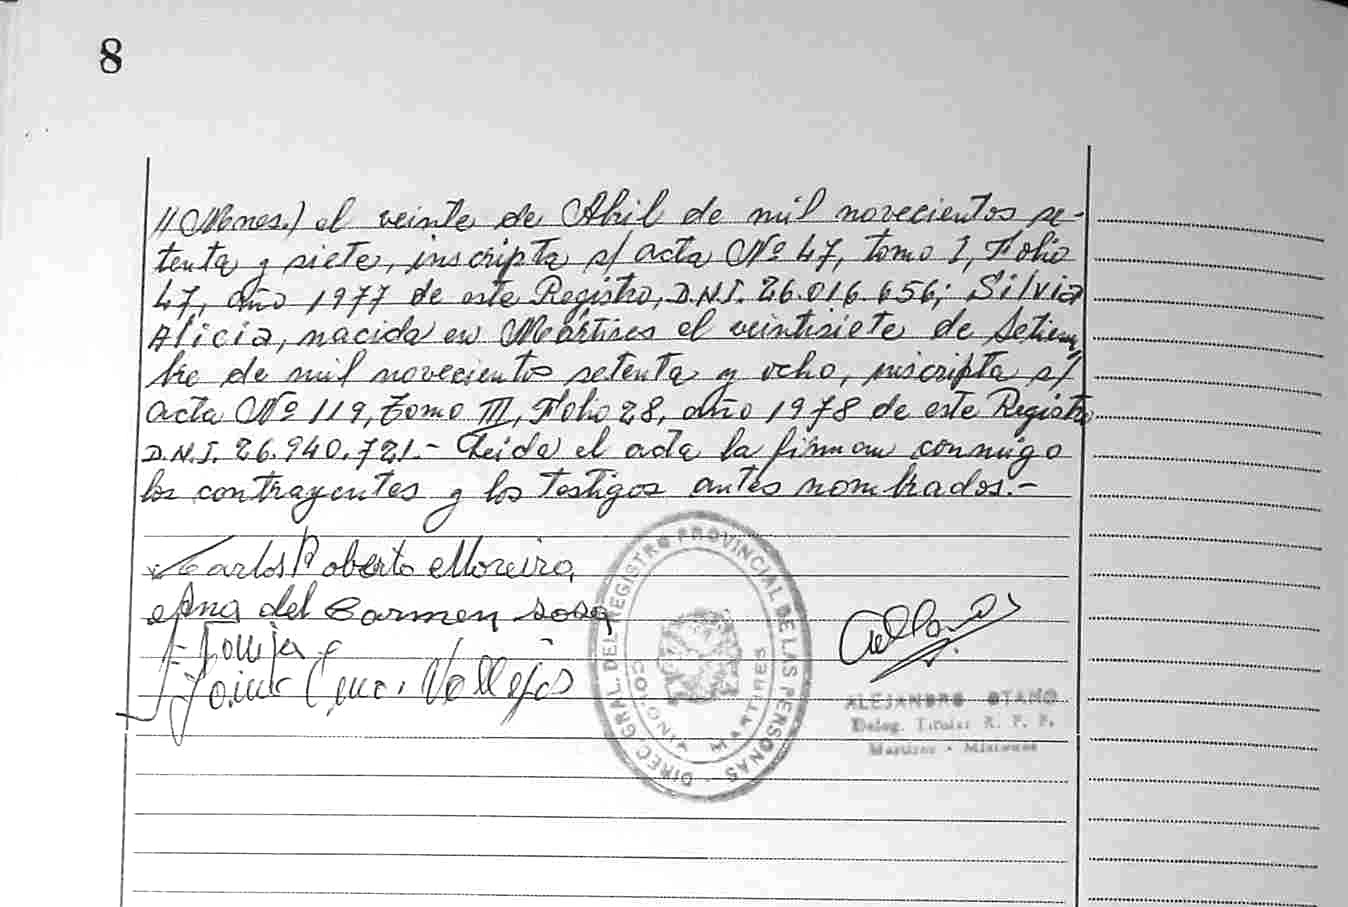 8
//(Mnes.) el veinte de Abril de mil novecientos se-
tenta y siete, inscripta s/ acta Nº 47, tomo I, Folio
47, año 1977 de este Registro, D.N.I. 26.016.656; Silvia
Alicia, nacida en Mártires el veintisiete de Setiem
bre de mil novecientos setenta y ocho, inscripta s/
acta Nº 119, tomo III, Folio 28, año 1978 de este Registro
D.N.I. 26.940.721.- Leida el acta la firman conmigo
los contrayentes y los testigos antes nombrados.-
Carlos Roberto Moreira
Ana del Carmen Sosa
Vallejos
DIREC. GRAL. DEL REGISTRO PROVINCIAL DE LAS PERSONAS
COLONIA MARTIRES
ALEJANDRO OTAÑO
Deleg. Titular R. P. P.
Martires - Misiones